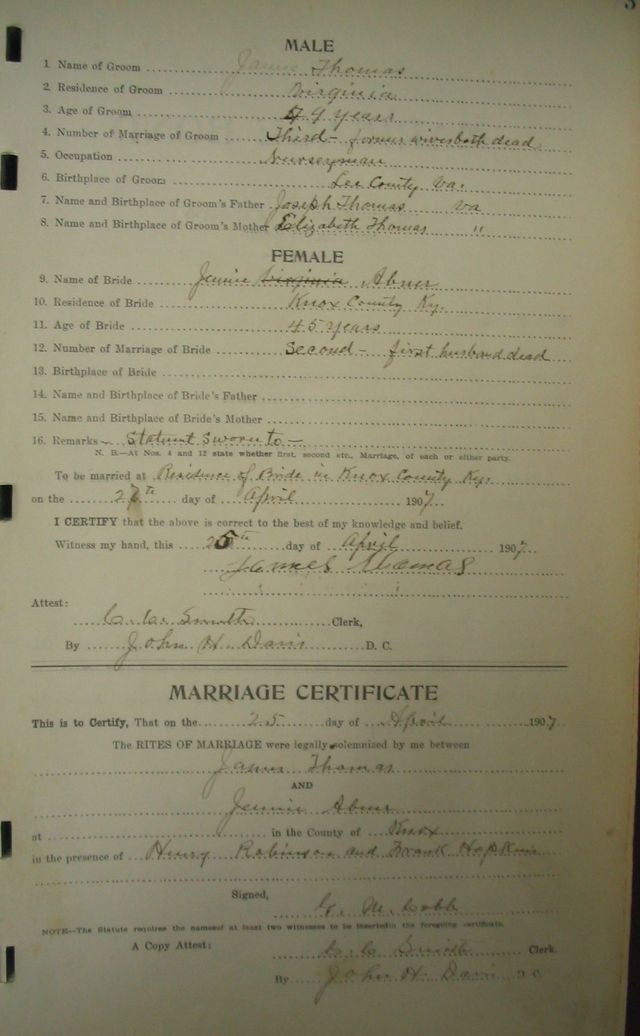 MALE
1. Name of Groom James Thomas
2. Residence of Groom Virginia
3. Age of Groom 49 years
4. Number of Marriage of Groom Third - former wives both dead
5. Occupation Nurseryman
6. Birthplace of Groom Lee County Va.
7. Name and Birthplace of Groom's Father Joseph Thomas Va
8. Name and Birthplace of Groom's Mother Elizabeth Thomas "
FEMALE
9. Name of Bride Jennie Virginia Abner
10. Residence of Bride Knox County Ky.
11. Age of Bride 45 years
12. Number of Marriage of Bride Second - first husband dead
13. Birthplace of Bride
14. Name and Birthplace of Bride's Father
15. Name and Birthplace of Bride's Mother
16. Remarks - Statment Sworn to -
N. B.—At Nos. 4 and 12 state whether first, second etc., Marriage, of each or either party.
To be married at Residence of Bride in Knox County Ky.
on the 26th day of April 1907
I CERTIFY that the above is correct to the best of my knowledge and belief.
Witness my hand, this 25th day of April 1907
James Thomas
Attest:
C. C. Smith Clerk,
By John H. Davis D. C.
MARRIAGE CERTIFICATE
This is to Certify, That on the 25 day of April 1907
The RITES OF MARRIAGE were legally solemnized by me between
James Thomas
AND
Jennie Abner
at in the County of Knox
in the presence of Henry Robinson and Frank Hopkins
Signed,
G. M. Cobb
NOTE—The Statute requires the names of at least two witnesses to be inserted in the foregoing certificate.
A Copy Attest: C. C. Smith Clerk.
By John H. Davis D. C.